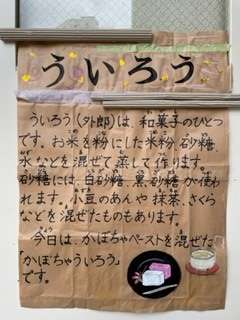 ういろう
ういろう(外郎)は 和菓子のひとつ
です。お米を粉にした米粉、砂糖、
水などを混ぜて蒸して作ります。
砂糖には、白砂糖、黒砂糖が使わ
れます。小豆のあんや抹茶、さくら
などを混ぜたものもあります。
今日は、かぼちゃペーストを混ぜた
「かぼちゃういろう」
です。